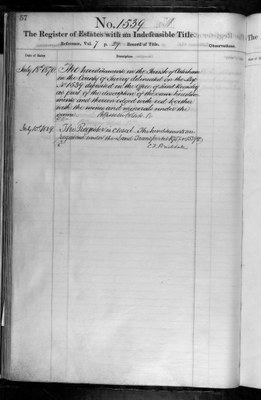 57
No. 1539
The Register of Estates with an Indefeasible Title.
Reference, Vol. 7 p. 39 Record of Title.
Date of Entry. Description. Observations.
July 1870 The hereditaments in the Parish of
in the County of Surrey delineated on the Map
No 1539 deposited in the Office of Land Registry
as part of the description of the same heredita-
ments and thereon edged with red together
with the mines and minerals under the
same
July 1889 This Register is closed. The hereditaments are
registered under the Land Transfer Act